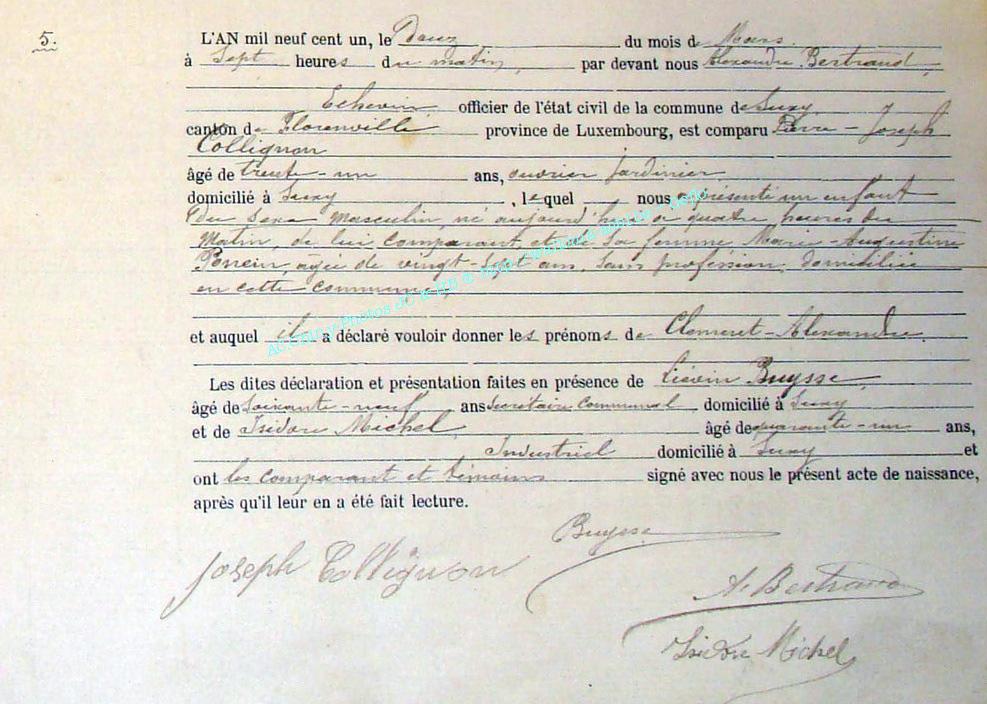 5.
L'AN mil neuf cent un, le Deux du mois de Mars
à Sept heures du matin, par devant nous Alexandre Bertrand,
Echevin, officier de l'état civil de la commune de Suxy
canton de Florenville province de Luxembourg, est comparu Pierre - Joseph
Collignon
âgé de trente-un ans, ouvrier Jardinier
domicilié à Suxy, lequel nous a présenté un enfant
du sexe masculin, né aujourd'hui à quatre heures du
Matin, de lui comparant, et de sa femme, Marie-Augustine
âgée de vingt-sept ans, sans profession, domiciliée
en cette commune,
et auquel il a déclaré vouloir donner les prénoms de Clément-Alexandre.
Les dites déclaration et présentation faites en présence de Liévin Buysse,
âgé de Soixante-neuf ans Secrétaire Communal domicilié à Suxy
et de Isidore Michel, âgé de quarante-un ans,
Industriel domicilié à Suxy et
ont les comparant et témoins signé avec nous le présent acte de naissance,
après qu'il leur en a été fait lecture.
Buysse
Joseph Collignon
A. Bertrand
Isidore Michel